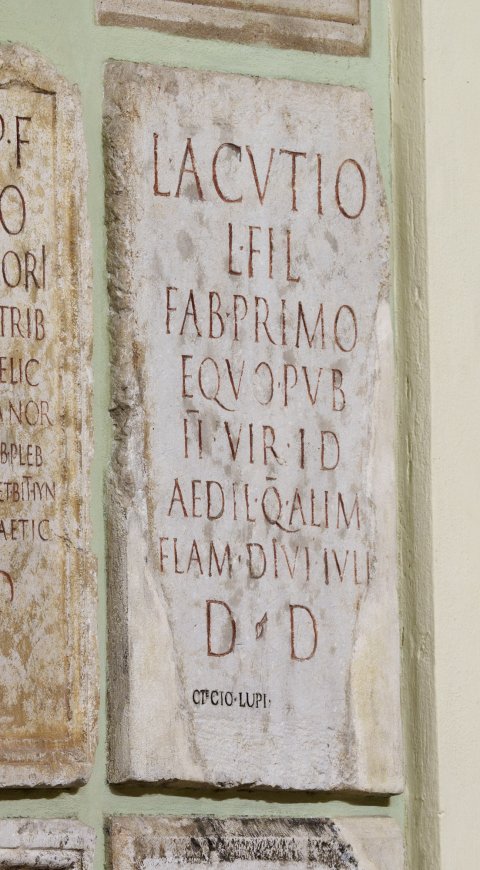 P·F
O
ORI
TRIB
ELIC
ANOR
B·PLEB
ETBITHYN
AETIC
L·ACVTIO
L·FIL
FAB·PRIMO
EQVO·PVB
II·VIR·I D
AEDIL·Q·ALIM
FLAM·DIVI IVLI
D D
CTE CIO·LUPI·